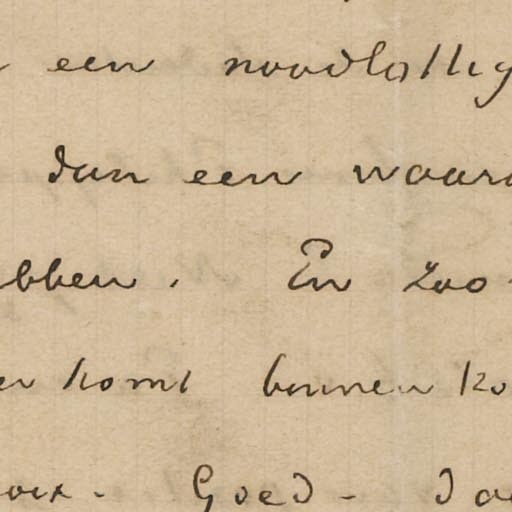 een noodlottig
dan een waard
ebben. En zoo
er komt binnen ko
oix. Goed - da